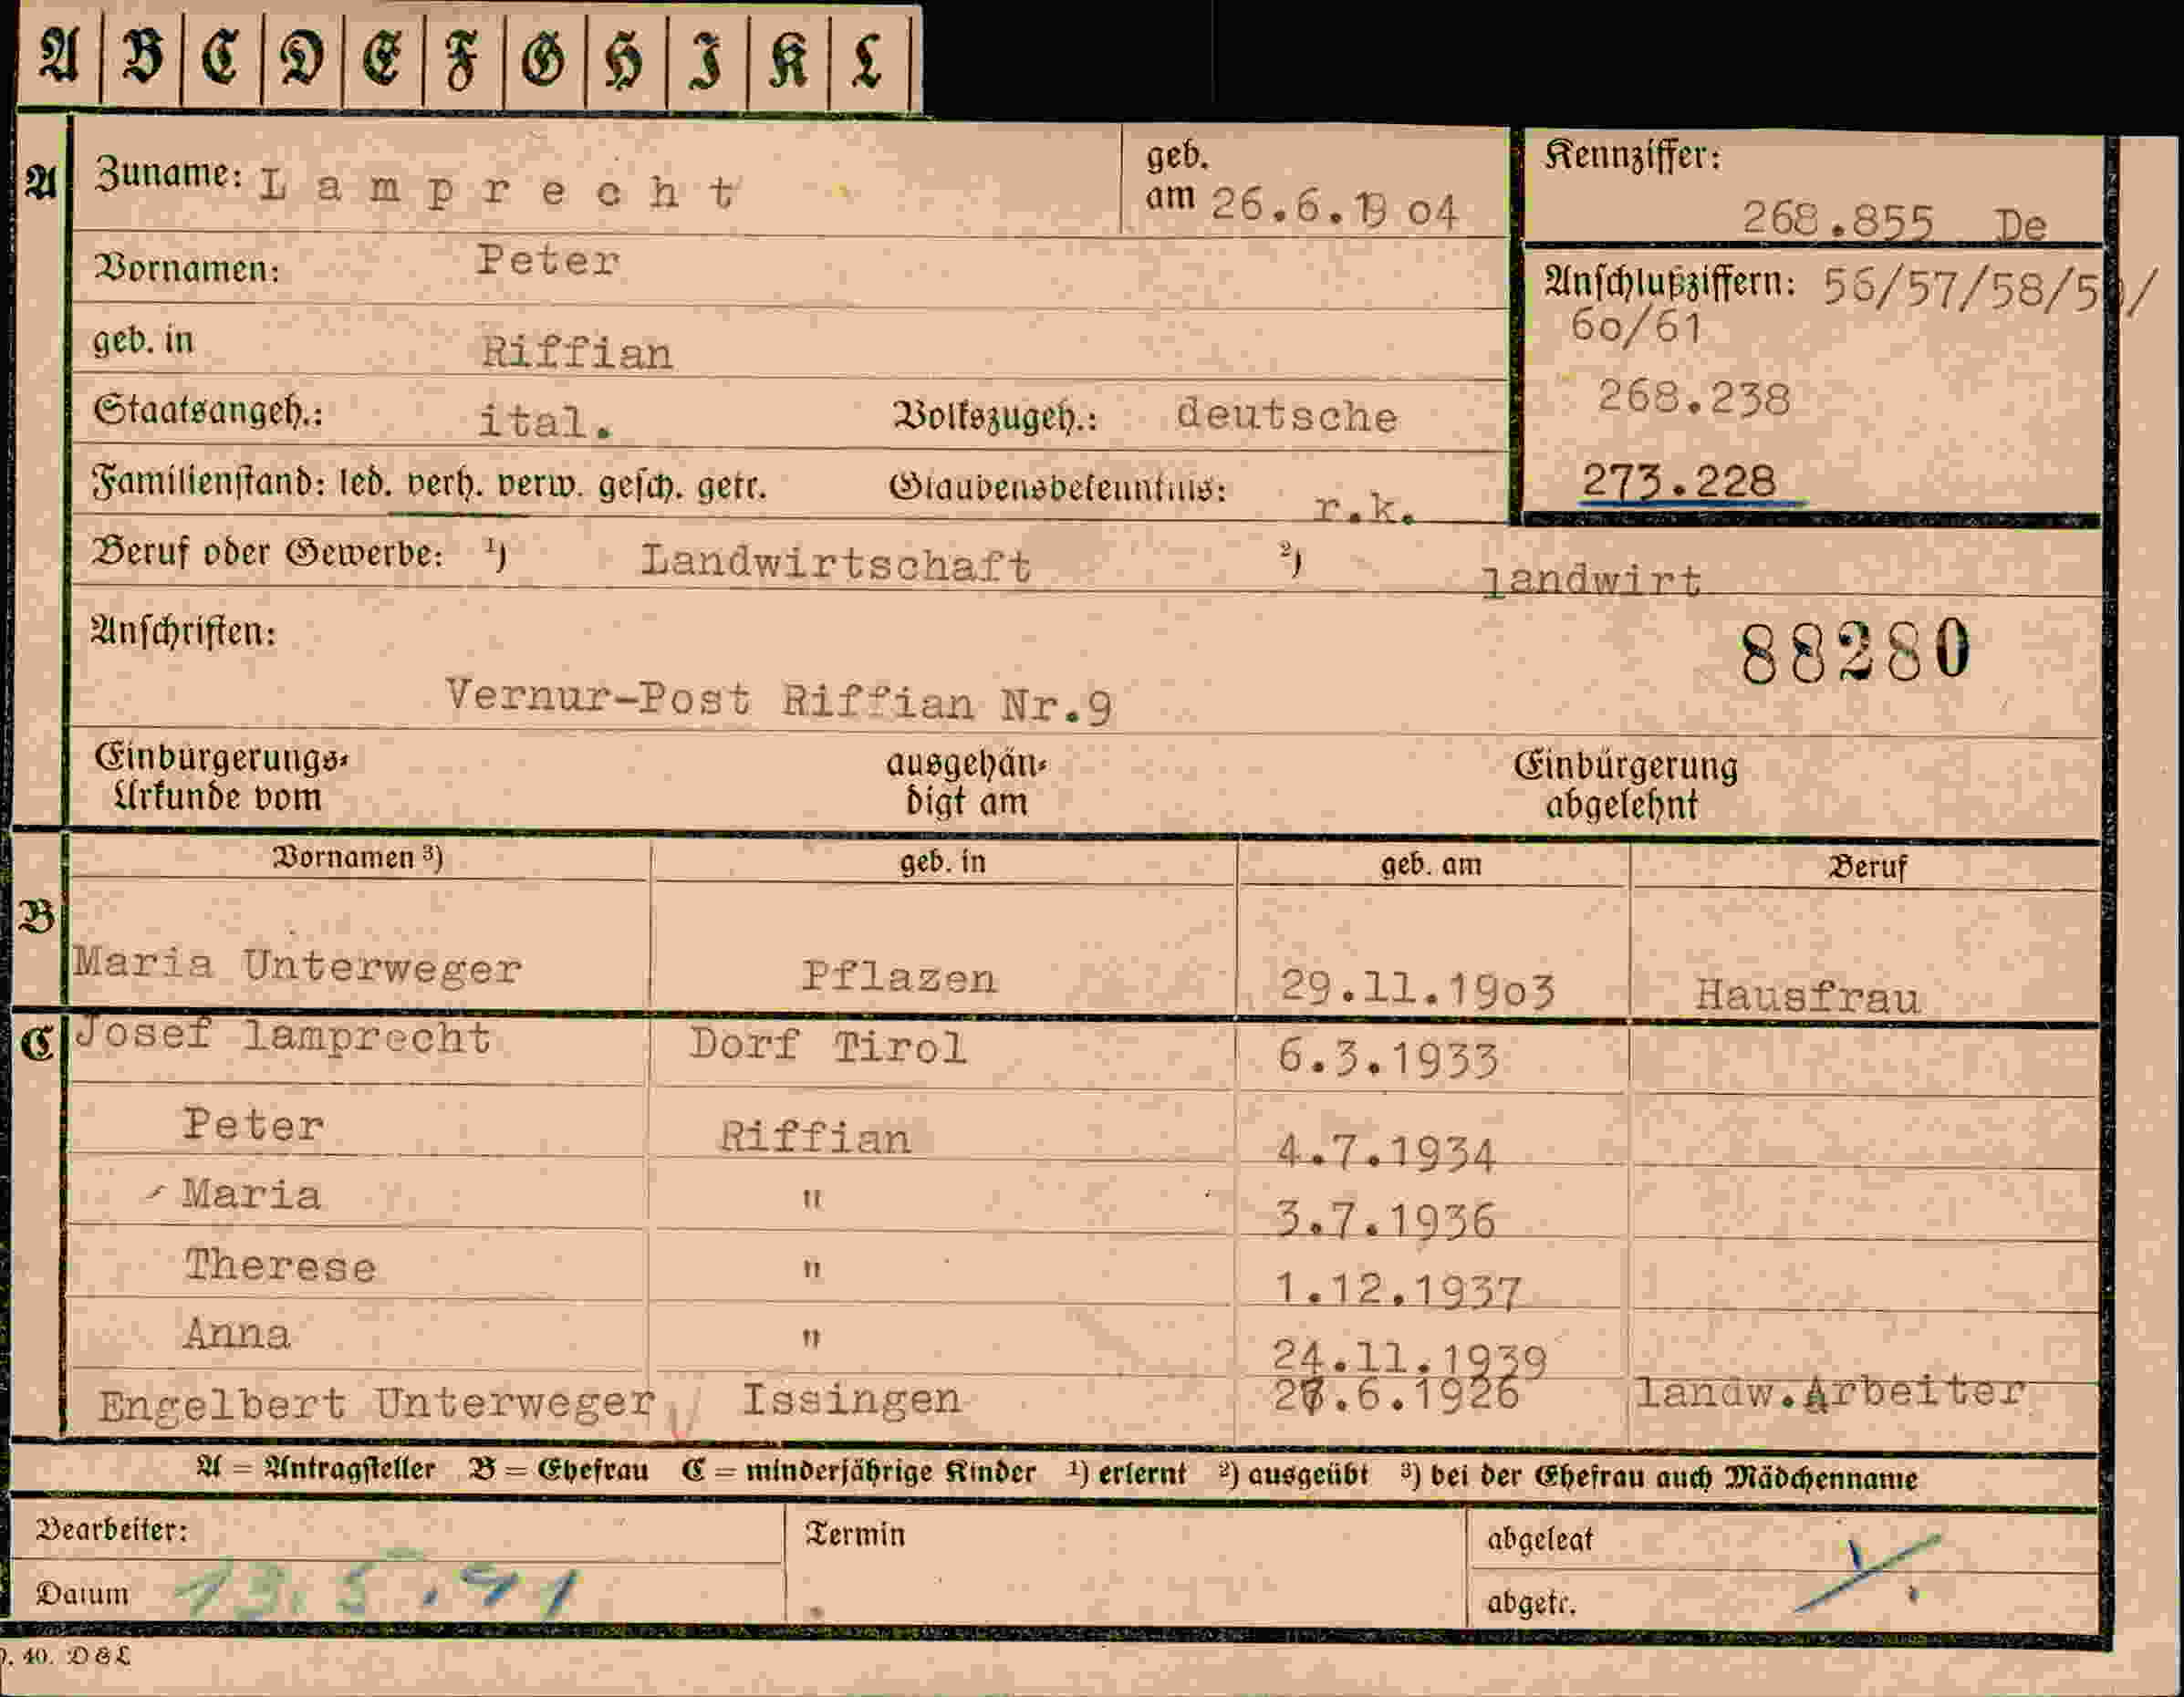 A B C D E F G H I K L
A Zuname: Lamprecht geb. am 26.6.1904 Kennziffer: 268.855 De
Vornamen: Peter Anschlußziffern: 56/57/58/59/
60/61
geb. in Riffian
268.238
Staatsangeh.: ital. Volkszugeh.: deutsche
Familienstand: led. verh. verw. gesch. getr. Glaubensbekenntnis: r.k. 273.228
Beruf oder Gewerbe: ¹) Landwirtschaft ²) landwirt
Anschriften: 88280
Vernur-Post Riffian Nr.9
Einbürgerungs-Urkunde vom ausgehändigt am Einbürgerung abgelehnt
Vornamen ³) geb. in geb. am Beruf
B Maria Unterweger Pflazen 29.11.1903 Hausfrau
C Josef lamprecht Dorf Tirol 6.3.1933
Peter Riffian 4.7.1934
Maria " 3.7.1936
Therese " 1.12.1937
Anna " 24.11.1939
Engelbert Unterweger Issingen .6.1926 landw.Arbeiter
A = Antragsteller B = Ehefrau C = minderjährige Kinder ¹) erlernt ²) ausgeübt ³) bei der Ehefrau auch Mädchenname
Bearbeiter: Termin abgelegt
Datum 13.5.41 abgetr.
40. D&L